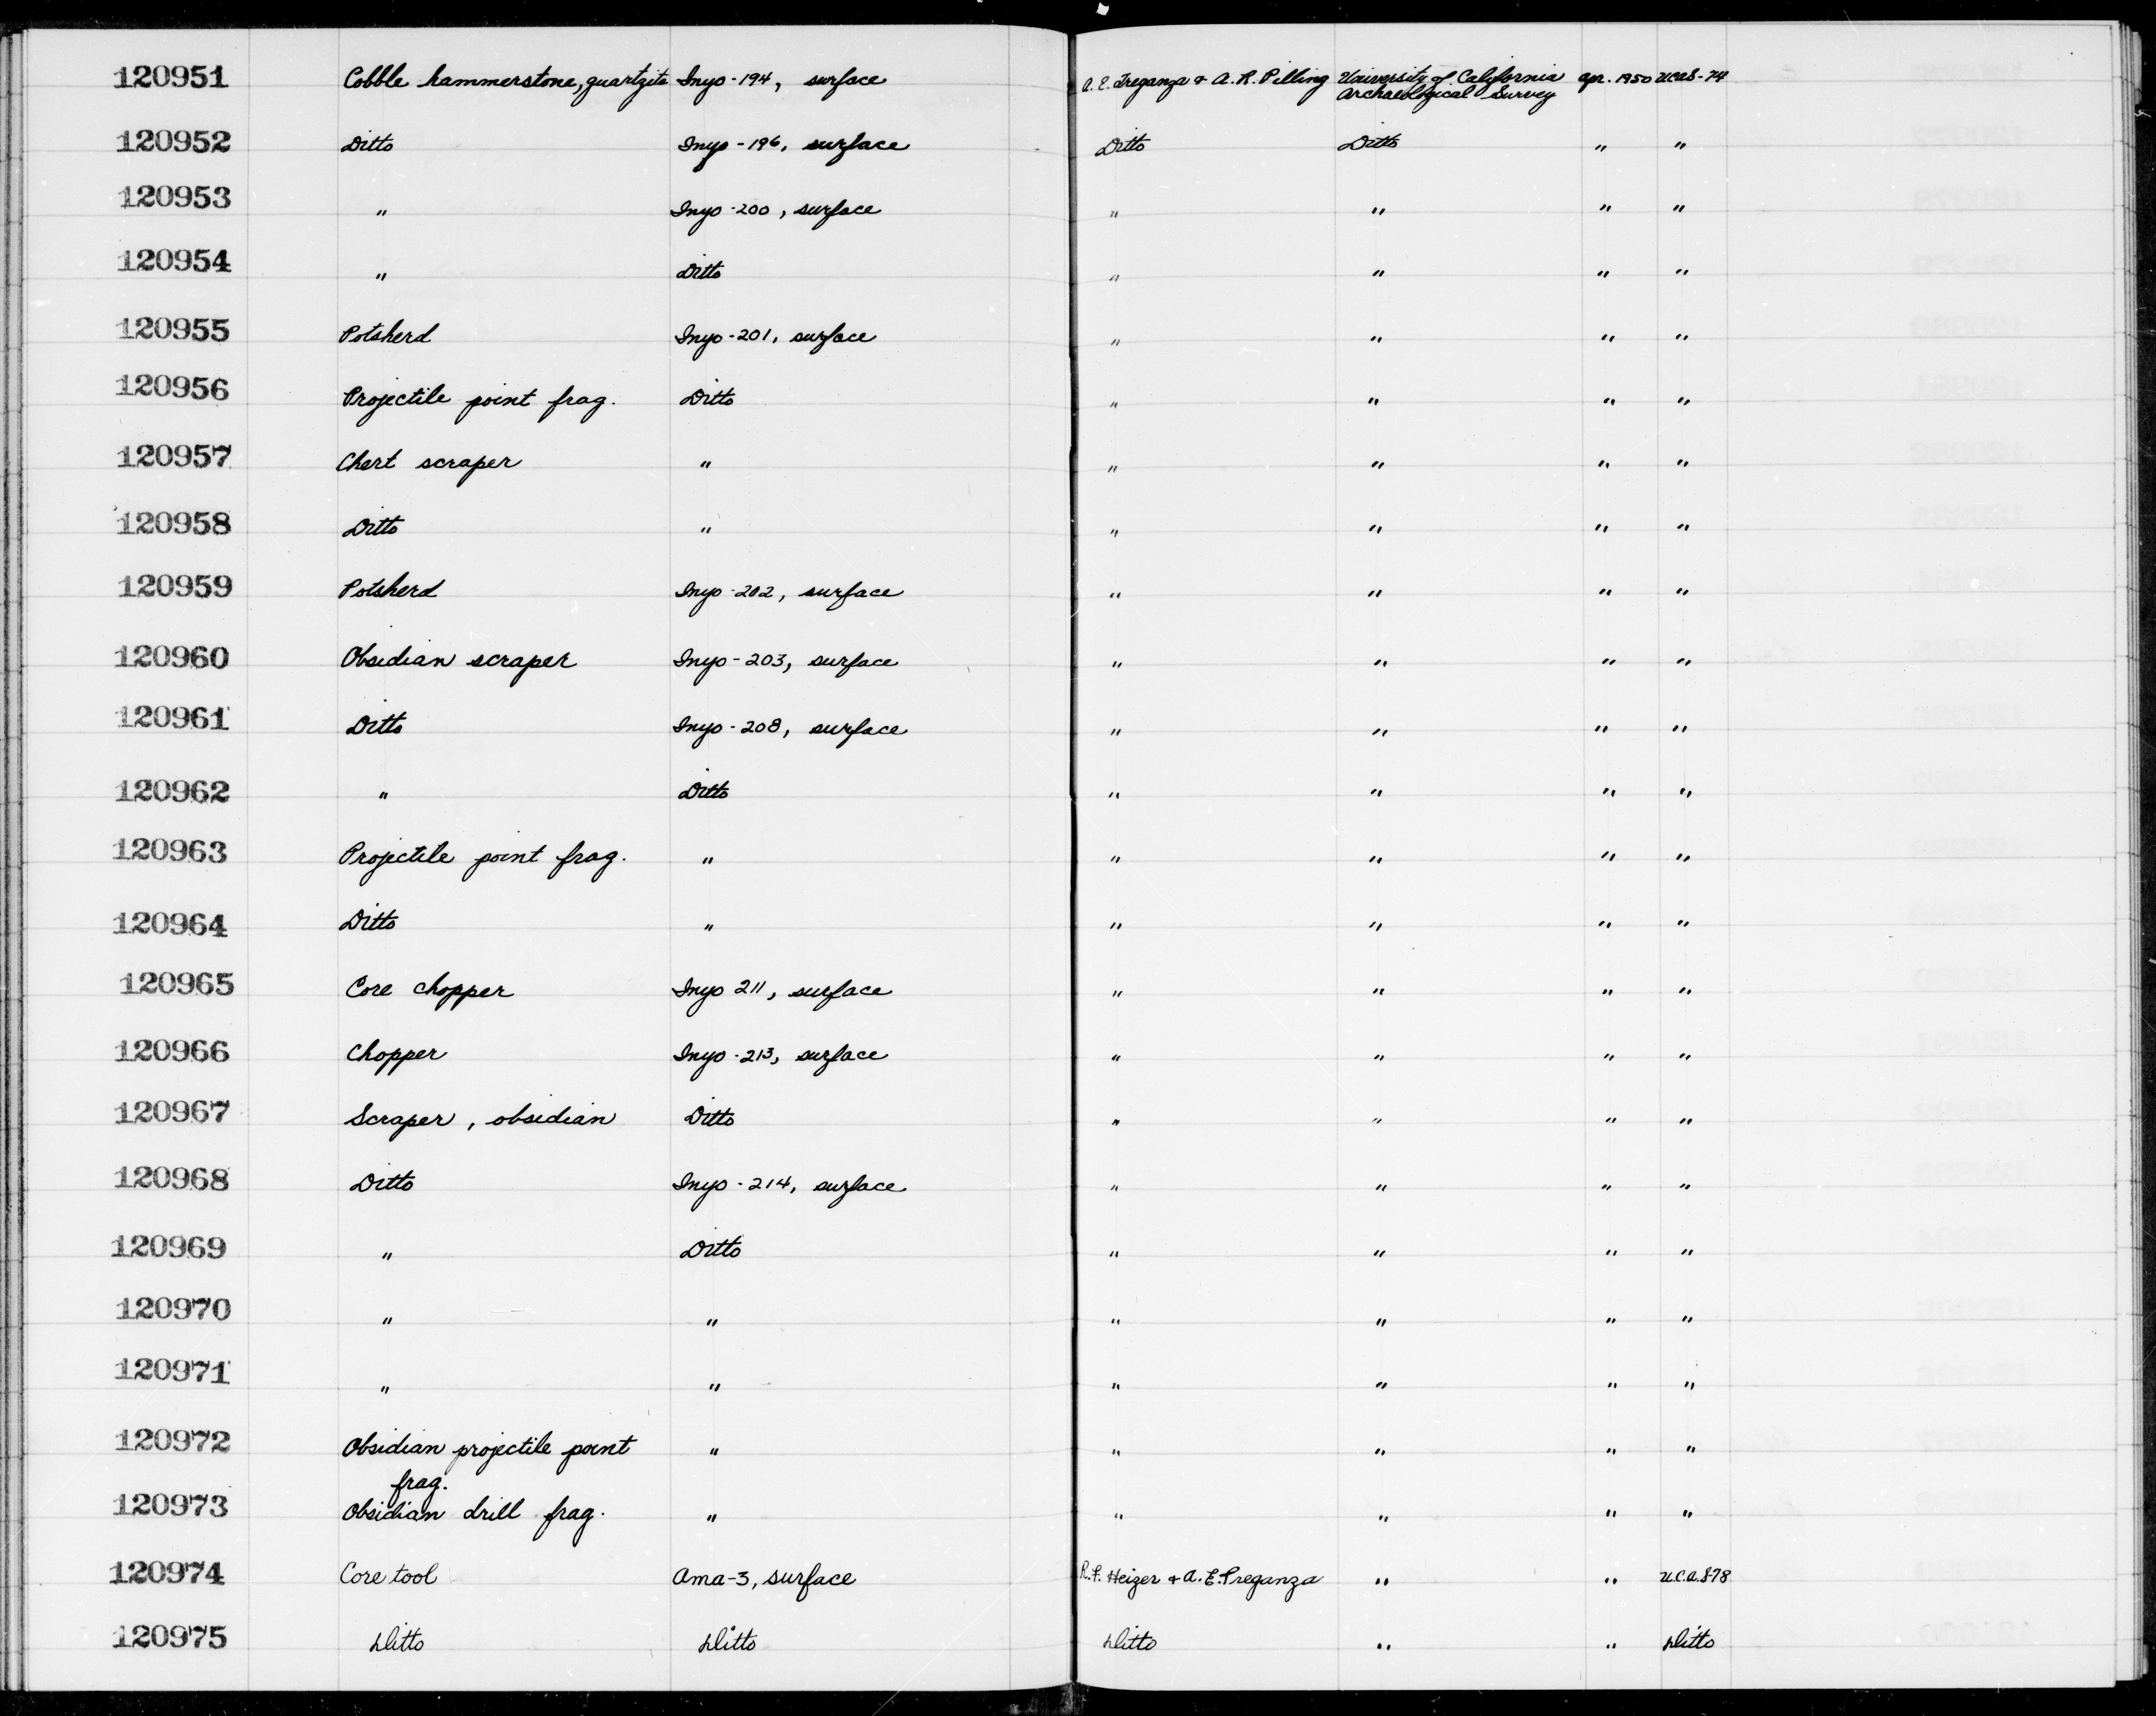 120951 Cobble hammerstone, quartzite Inyo-194, surface A. E. Treganza & A. R. Pilling University of California Apr. 1950 UCAS-74
Archaeological Survey
120952 Ditto Inyo-196, surface Ditto Ditto " "
120953 " Inyo-200, surface " " " "
120954 " Ditto " " " "
120955 Potsherd Inyo-201, surface " " " "
120956 Projectile point frag. Ditto " " " "
120957 Chert scraper " " " " "
120958 Ditto " " " " "
120959 Potsherd Inyo-202, surface " " " "
120960 Obsidian scraper Inyo-203, surface " " " "
120961 Ditto Inyo-208, surface " " " "
120962 " Ditto " " " "
120963 Projectile point frag. " " " " "
120964 Ditto " " " " "
120965 Core chopper Inyo 211, surface " " " "
120966 Chopper Inyo-213, surface " " " "
120967 Scraper, obsidian Ditto " " " "
120968 Ditto Inyo-214, surface " " " "
120969 " Ditto " " " "
120970 " " " " " "
120971 " " " " " "
120972 Obsidian projectile point " " " " "
frag.
120973 Obsidian drill frag. " " " " "
120974 Core tool Ama-3, surface R. F. Heizer & A. E. Treganza " " U.C.A.S-78
120975 Ditto Ditto Ditto " " Ditto